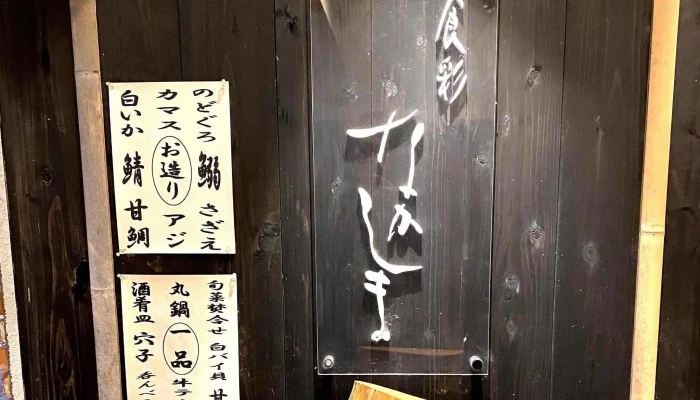 食彩
なかしま
のどぐろ 鰯 さざえ
カマス お造り アジ
白いか 鯖 甘鯛
旬菜焚合せ 白バイ貝 甘
丸鍋 一品 牛テ
酒肴皿 穴子 呑んべ